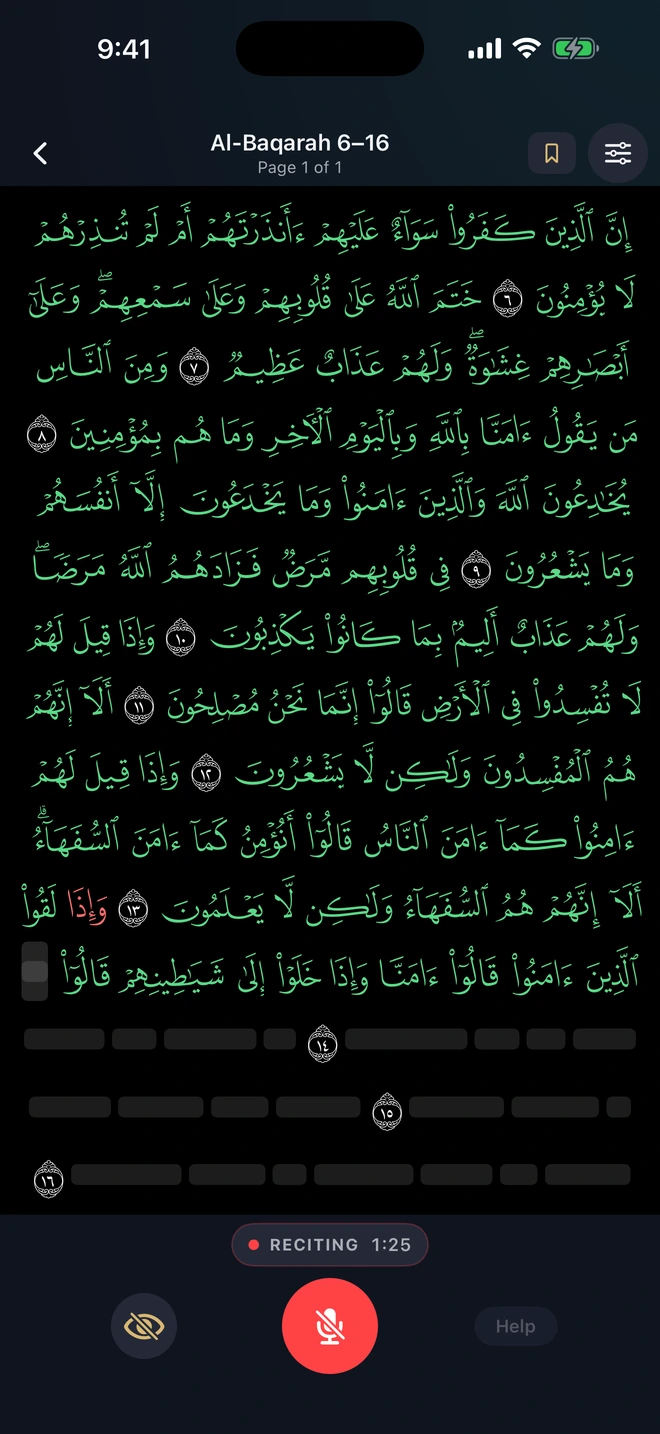 9:41
Al-Baqarah 6–16
Page 1 of 1
إِنَّ ٱلَّذِينَ كَفَرُوا۟ سَوَآءٌ عَلَيْهِمْ ءَأَنذَرْتَهُمْ أَمْ لَمْ تُنذِرْهُمْ
لَا يُؤْمِنُونَ ٦ خَتَمَ ٱللَّهُ عَلَىٰ قُلُوبِهِمْ وَعَلَىٰ سَمْعِهِمْ ۖ وَعَلَىٰٓ
أَبْصَـٰرِهِمْ غِشَـٰوَةٌ ۖ وَلَهُمْ عَذَابٌ عَظِيمٌ ٧ وَمِنَ ٱلنَّاسِ
مَن يَقُولُ ءَامَنَّا بِٱللَّهِ وَبِٱلْيَوْمِ ٱلْـَٔاخِرِ وَمَا هُم بِمُؤْمِنِينَ ٨
يُخَـٰدِعُونَ ٱللَّهَ وَٱلَّذِينَ ءَامَنُوا۟ وَمَا يَخْدَعُونَ إِلَّآ أَنفُسَهُمْ
وَمَا يَشْعُرُونَ ٩ فِى قُلُوبِهِم مَّرَضٌ فَزَادَهُمُ ٱللَّهُ مَرَضًا ۖ
وَلَهُمْ عَذَابٌ أَلِيمٌۢ بِمَا كَانُوا۟ يَكْذِبُونَ ١٠ وَإِذَا قِيلَ لَهُمْ
لَا تُفْسِدُوا۟ فِى ٱلْأَرْضِ قَالُوٓا۟ إِنَّمَا نَحْنُ مُصْلِحُونَ ١١ أَلَآ إِنَّهُمْ
هُمُ ٱلْمُفْسِدُونَ وَلَـٰكِن لَّا يَشْعُرُونَ ١٢ وَإِذَا قِيلَ لَهُمْ
ءَامِنُوا۟ كَمَآ ءَامَنَ ٱلنَّاسُ قَالُوٓا۟ أَنُؤْمِنُ كَمَآ ءَامَنَ ٱلسُّفَهَآءُ ۗ
أَلَآ إِنَّهُمْ هُمُ ٱلسُّفَهَآءُ وَلَـٰكِن لَّا يَعْلَمُونَ ١٣ وَإِذَا لَقُوا۟
ٱلَّذِينَ ءَامَنُوا۟ قَالُوٓا۟ ءَامَنَّا وَإِذَا خَلَوْا۟ إِلَىٰ شَيَـٰطِينِهِمْ قَالُوٓا۟
١٤
١٥
١٦
RECITING 1:25
Help